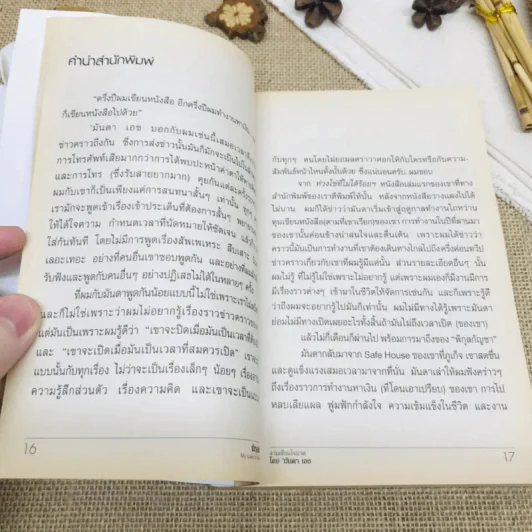 คำนำสำนักพิมพ์
"ครึ่งปีผมเขียนหนังสือ อีกครึ่งปีผมทำงานหาเงิน
ก็เขียนหนังสือไปด้วย"
'มันดา เอช บอกกับผมเช่นนี้เสมอ
ข่าวคราวถึงกัน ซึ่งการส่งข่าวนั้นก็มักจะเป็นไปใน
การโทรศัพท์เสียมากกว่าการได้พบปะหน้าค่าตา
และการโทร (ซึ่งรับสายยากมาก) คุยกันแต่ละครั้ง
ผมกับเขาก็เป็นเพียงแค่การสนทนาสั้นๆ เท่านั้น ทุก
เรามักจะพูดเข้าเรื่องเข้าประเด็นที่ต้องการสั้นๆ พยายาม
ให้ได้ใจความ กำหนดเวลาที่นัดหมายให้ชัดเจน แล้ว
ใส่กันทันที โดยไม่มีการพูดเรื่องสัพเพเหระ สืบเสาะ
เลอะเทอะ อย่างที่คนอื่นเขาชอบพูดกัน และอย่างที่ผม
รับฟังและพูดกับคนอื่นๆ อย่างปฏิเสธไม่ได้ในหลายๆ ครั้ง
ที่ผมกับมันดาพูดกันน้อยแบบนี้ไม่ใช่เพราะเราไม่
และก็ไม่ใช่เพราะว่าผมไม่อยากรู้เรื่องราวข่าวคราวของ
แต่มันเป็นเพราะผมรู้ดีว่า "เขาจะปิดเมื่อมันเป็นเวลาที่
และ "เขาจะเปิดเมื่อมันเป็นเวลาที่สมควรเปิด" เขาจะ
แบบนั้นกับทุกเรื่อง ไม่ว่าจะเป็นเรื่องเล็กๆ น้อยๆ เรื่อง
ความรู้สึกส่วนตัว เรื่องความคิด และเขาจะเป็น
16
กับทุกๆ คนโดยไม่ยกผลคราวาดอกให้กับใครหรือกับความ
สัมพันธ์หน้าไหนทั้งนั้นด้วย ซึ่งแน่นอนครับ..ผมชอบ
จาก ห่วงโซ่ที่ไม่ได้ร้อยฯ หนังสือเล่มแรกของเขาที่ทาง
สำนักพิมพ์ของเราตีพิมพ์ให้นั้น หลังจากหนังสือวางแผงไปได้
ไม่นาน ผมก็ได้ข่าวว่ามันดาเริ่มเข้าสู่ฤดูกาลทำงานไถหว่าน
ทุนเขียนหนังสือฤดูตามที่เขาเรียกๆของเขา การทำงานในปีที่ผ่านมา
ของเขานั้นค่อนข้างน่าสนใจและตื่นเต้น เพราะผมได้ข่าวว่า
คราวนี้มันเป็นการทำงานที่เขาต้องเดินทางไกลไปถึงครึ่งค่อนทวีป
ข่าวคราวเกี่ยวกับเขาที่ผมรู้มีแค่นั้น ส่วนรายละเอียดอื่นๆ นั้น
ผมไม่รู้ ที่ไม่รู้ไม่ใช่เพราะไม่อยากรู้ แต่เพราะผมเองก็มีงานมีการ
มีเรื่องราวต่างๆ เข้ามาในชีวิตให้จัดการเช่นกัน และก็เพราะรู้ดี
ว่าถึงผมจะอยากรู้ไปมันก็เท่านั้น ผมไม่มีทางได้รู้เพราะมันดา
ย่อมไม่มีทางเปิดเผยอะไรทั้งสิ้นถ้ามันไม่ถึงเวลาเปิด (ของเขา)
แล้วไม่กี่เดือนก็ผ่านไป พร้อมการมาถึงของ "พิกุลกัญชา"
มันดากลับมาจาก Safe House ของเขาที่ภูเก็ต เขาสดชื่น
และดูแข็งแรงเสมอเวลามาจากที่นั่น มันดาเล่าให้ผมฟังคร่าวๆ
ถึงเรื่องราวการทำงานหาเงิน (ที่โดนเอาเปรียบ) ของเขา การไป
หลบเลียแผล ฟูมฟักกำลังใจ ความเข้มแข็งในชีวิต และงาน
งานเขียนโดย
โดย 'มันดา เอช
17